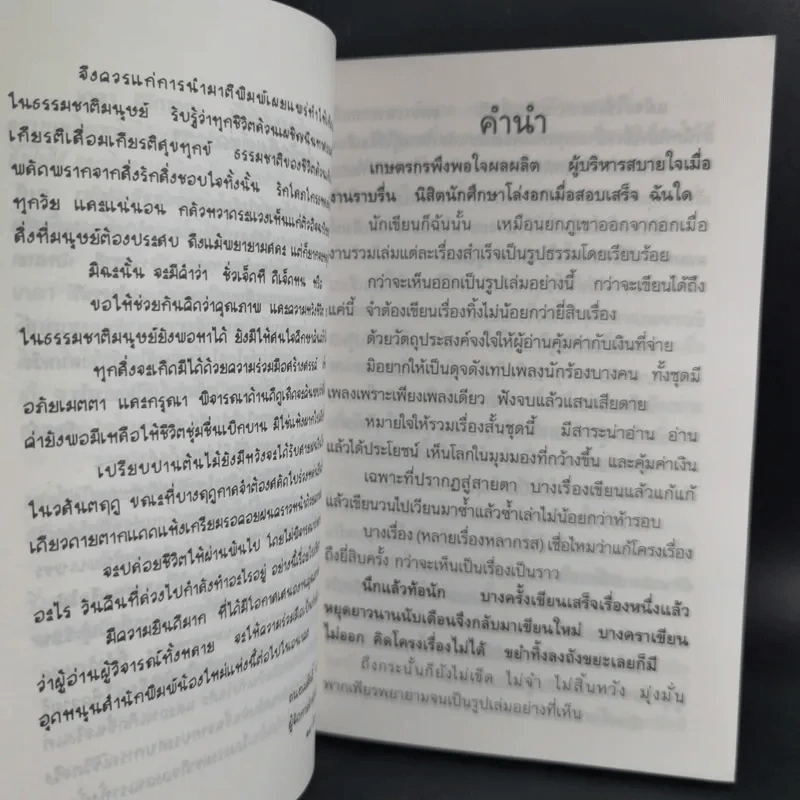 จึงควรแก่การนำมาตีพิมพ์เผยแพร่ทำให้
ในธรรมชาติมนุษย์ รับรู้ว่าทุกชีวิตล้วนเผชิญ
เกียรติเสื่อมเกียรติสุขทุกข์ ธรรมชาติของชีวิตล้วน
พลัดพรากจากสิ่งรักสิ่งชอบใจทั้งนั้น รักโลภโกรธหลง
ทุกวัย และแน่นอน กลัวหวาดระแวงเห็นแก่ตัว
สิ่งที่มนุษย์ต้องประสบ ถึงแม้พยายามสละ แต่ก็ยาก
มิฉะนั้น จะมีคำว่า ชั่วเจ็ดที ดีเจ็ดหน
ขอให้ช่วยกันคิดว่าคุณภาพ และความ
ในธรรมชาติมนุษย์ยังพอหาได้ ยังมีให้สนใจศึกษา
ทุกสิ่งจะเกิดมีได้ด้วยความร่วมมือสร้างสรรค์
อภัยเมตตา และกรุณา พิจารณาด้านดีดูเถิดจะ
ค่ายังพอมีเหลือให้ชีวิตชุ่มชื่นเบิกบาน มิใช่แห้ง
เปรียบปานต้นไม้ยังมีหวังจะได้รับสาย
ในวสันตฤดู ขณะที่บางฤดูกาลจำต้องสลัดใบร่วง
เดียวดายตากแดดแห้งเกรียมรอคอยฝนคราวหน้า
จะปล่อยชีวิตให้ผ่านพ้นไป โดยไม่พิจารณา
อะไร วันคืนที่ล่วงไปกำลังทำอะไรอยู่ อย่างนี้เรื่อยไป
มีความยินดีมาก ที่ได้มีโอกาสเสนองาน
ว่าผู้อ่านผู้วิจารณ์ทั้งหลาย จะให้ความร่วมมือ
อุดหนุนสำนักพิมพ์น้องใหม่แห่งนี้ต่อไปในอนาคต
คำนำ
เกษตรกรพึงพอใจผลผลิต ผู้บริหารสบายใจเมื่อ
งานราบรื่น นิสิตนักศึกษาโล่งอกเมื่อสอบเสร็จ ฉันใด
นักเขียนก็ฉันนั้น เหมือนยกภูเขาออกจากอกเมื่อ
งานรวมเล่มแต่ละเรื่องสำเร็จเป็นรูปธรรมโดยเรียบร้อย
กว่าจะเห็นออกเป็นรูปเล่มอย่างนี้ กว่าจะเขียนได้ถึง
แค่นี้ จำต้องเขียนเรื่องทิ้งไม่น้อยกว่ายี่สิบเรื่อง
ด้วยวัตถุประสงค์จงใจให้ผู้อ่านคุ้มค่ากับเงินที่จ่าย
มิอยากให้เป็นดุจดังเทปเพลงนักร้องบางคน ทั้งชุดมี
เพลงเพราะเพียงเพลงเดียว ฟังจบแล้วแสนเสียดาย
หมายใจให้รวมเรื่องสั้นชุดนี้ มีสาระน่าอ่าน อ่าน
แล้วได้ประโยชน์ เห็นโลกในมุมมองที่กว้างขึ้น และคุ้มค่าเงิน
เฉพาะที่ปรากฏสู่สายตา บางเรื่องเขียนแล้วแก้แก้
แล้วเขียนวนไปเวียนมาซ้ำแล้วซ้ำเล่าไม่น้อยกว่าห้ารอบ
บางเรื่อง (หลายเรื่องหลากรส) เชื่อไหมว่าแก้โครงเรื่อง
ถึงยี่สิบครั้ง กว่าจะเห็นเป็นเรื่องเป็นราว
นึกแล้วท้อนัก บางครั้งเขียนเสร็จเรื่องหนึ่งแล้ว
หยุดยาวนานนับเดือนจึงกลับมาเขียนใหม่ บางคราเขียน
ไม่ออก คิดโครงเรื่องไม่ได้ ขยำทิ้งลงถังขยะเลยก็มี
ถึงกระนั้นก็ยังไม่เข็ด ไม่จำ ไม่สิ้นหวัง มุ่งมั่น
พากเพียรพยายามจนเป็นรูปเล่มอย่างที่เห็น